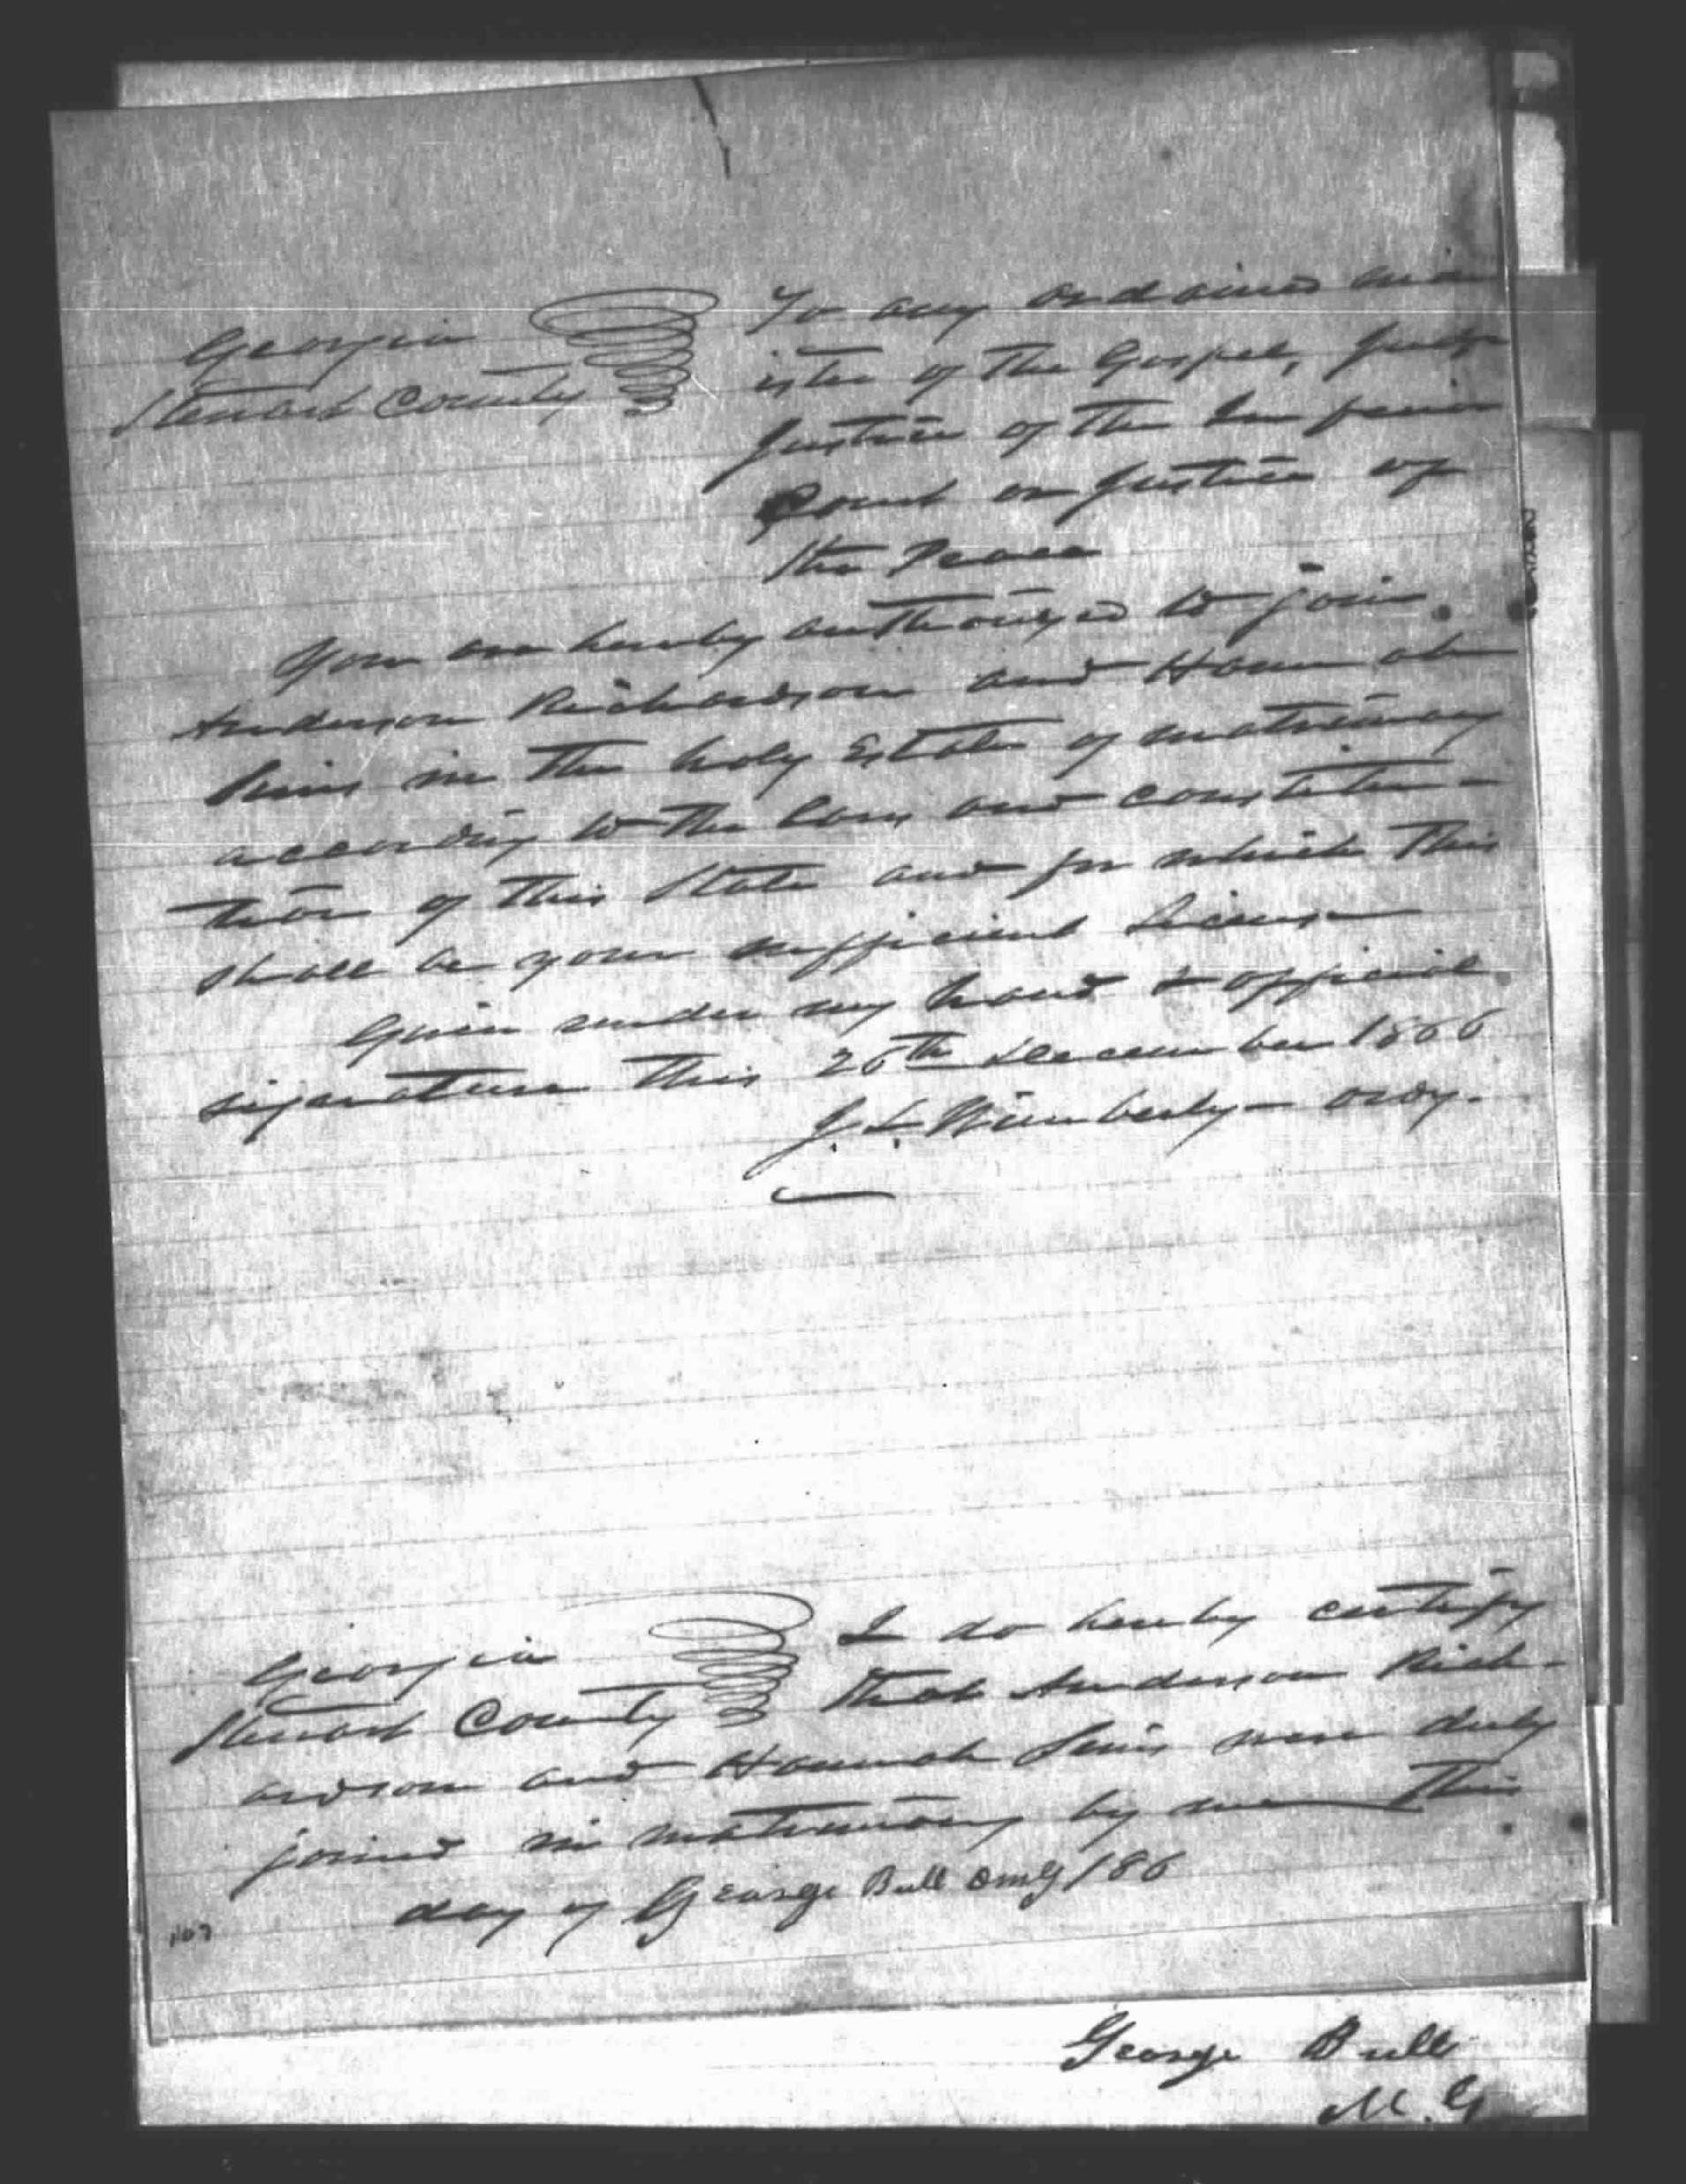 Georgia
Stewart County
To any ordained min
ister of the Gospel, Judge
Justice of the Inferior
Court or Justice of
the Peace
You are hereby authorized to join
Anderson Richardson and Hannah
in the holy Estate of matrimony
according to the Laws and constitu-
tion of this State and for which this
shall be your sufficient License
Given under my hand & official
signature this 26th December 1866
J. L. Wimberly - ordy.
Georgia
Stewart County
I do hereby certify
that Anderson Rich-
ardson and Hannah were duly
joined in matrimony by me this
day of George Bull OMG 186
1107
George Bull
M. G